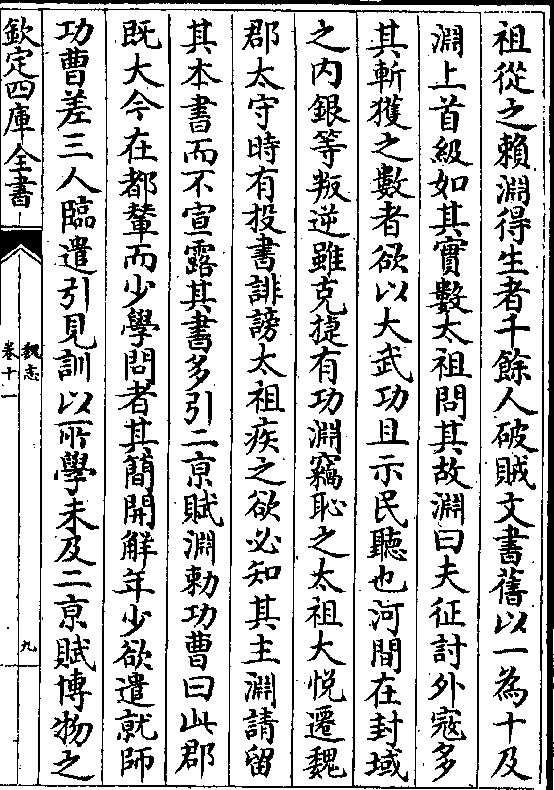 祖從之賴淵得生者千餘人破賊文書舊以一為十及
淵上首級如其實數太祖問其故淵曰夫征討外寇多
其斬獲之數者欲以大武功且示民聽也河間在封域
之内銀等叛逆雖克捷有功淵竊恥之太祖大悅遷魏
郡太守時有投書誹謗太祖疾之欲必知其主淵請留
其本書而不宣露其書多引二京賦淵勅功曹曰此郡
既大今在都輦而少學問者其簡開解年少欲遣就師
功曹差三人臨遣引見訓以所學未及二京賦博物之
欽定四庫全書
魏志
卷十一
九